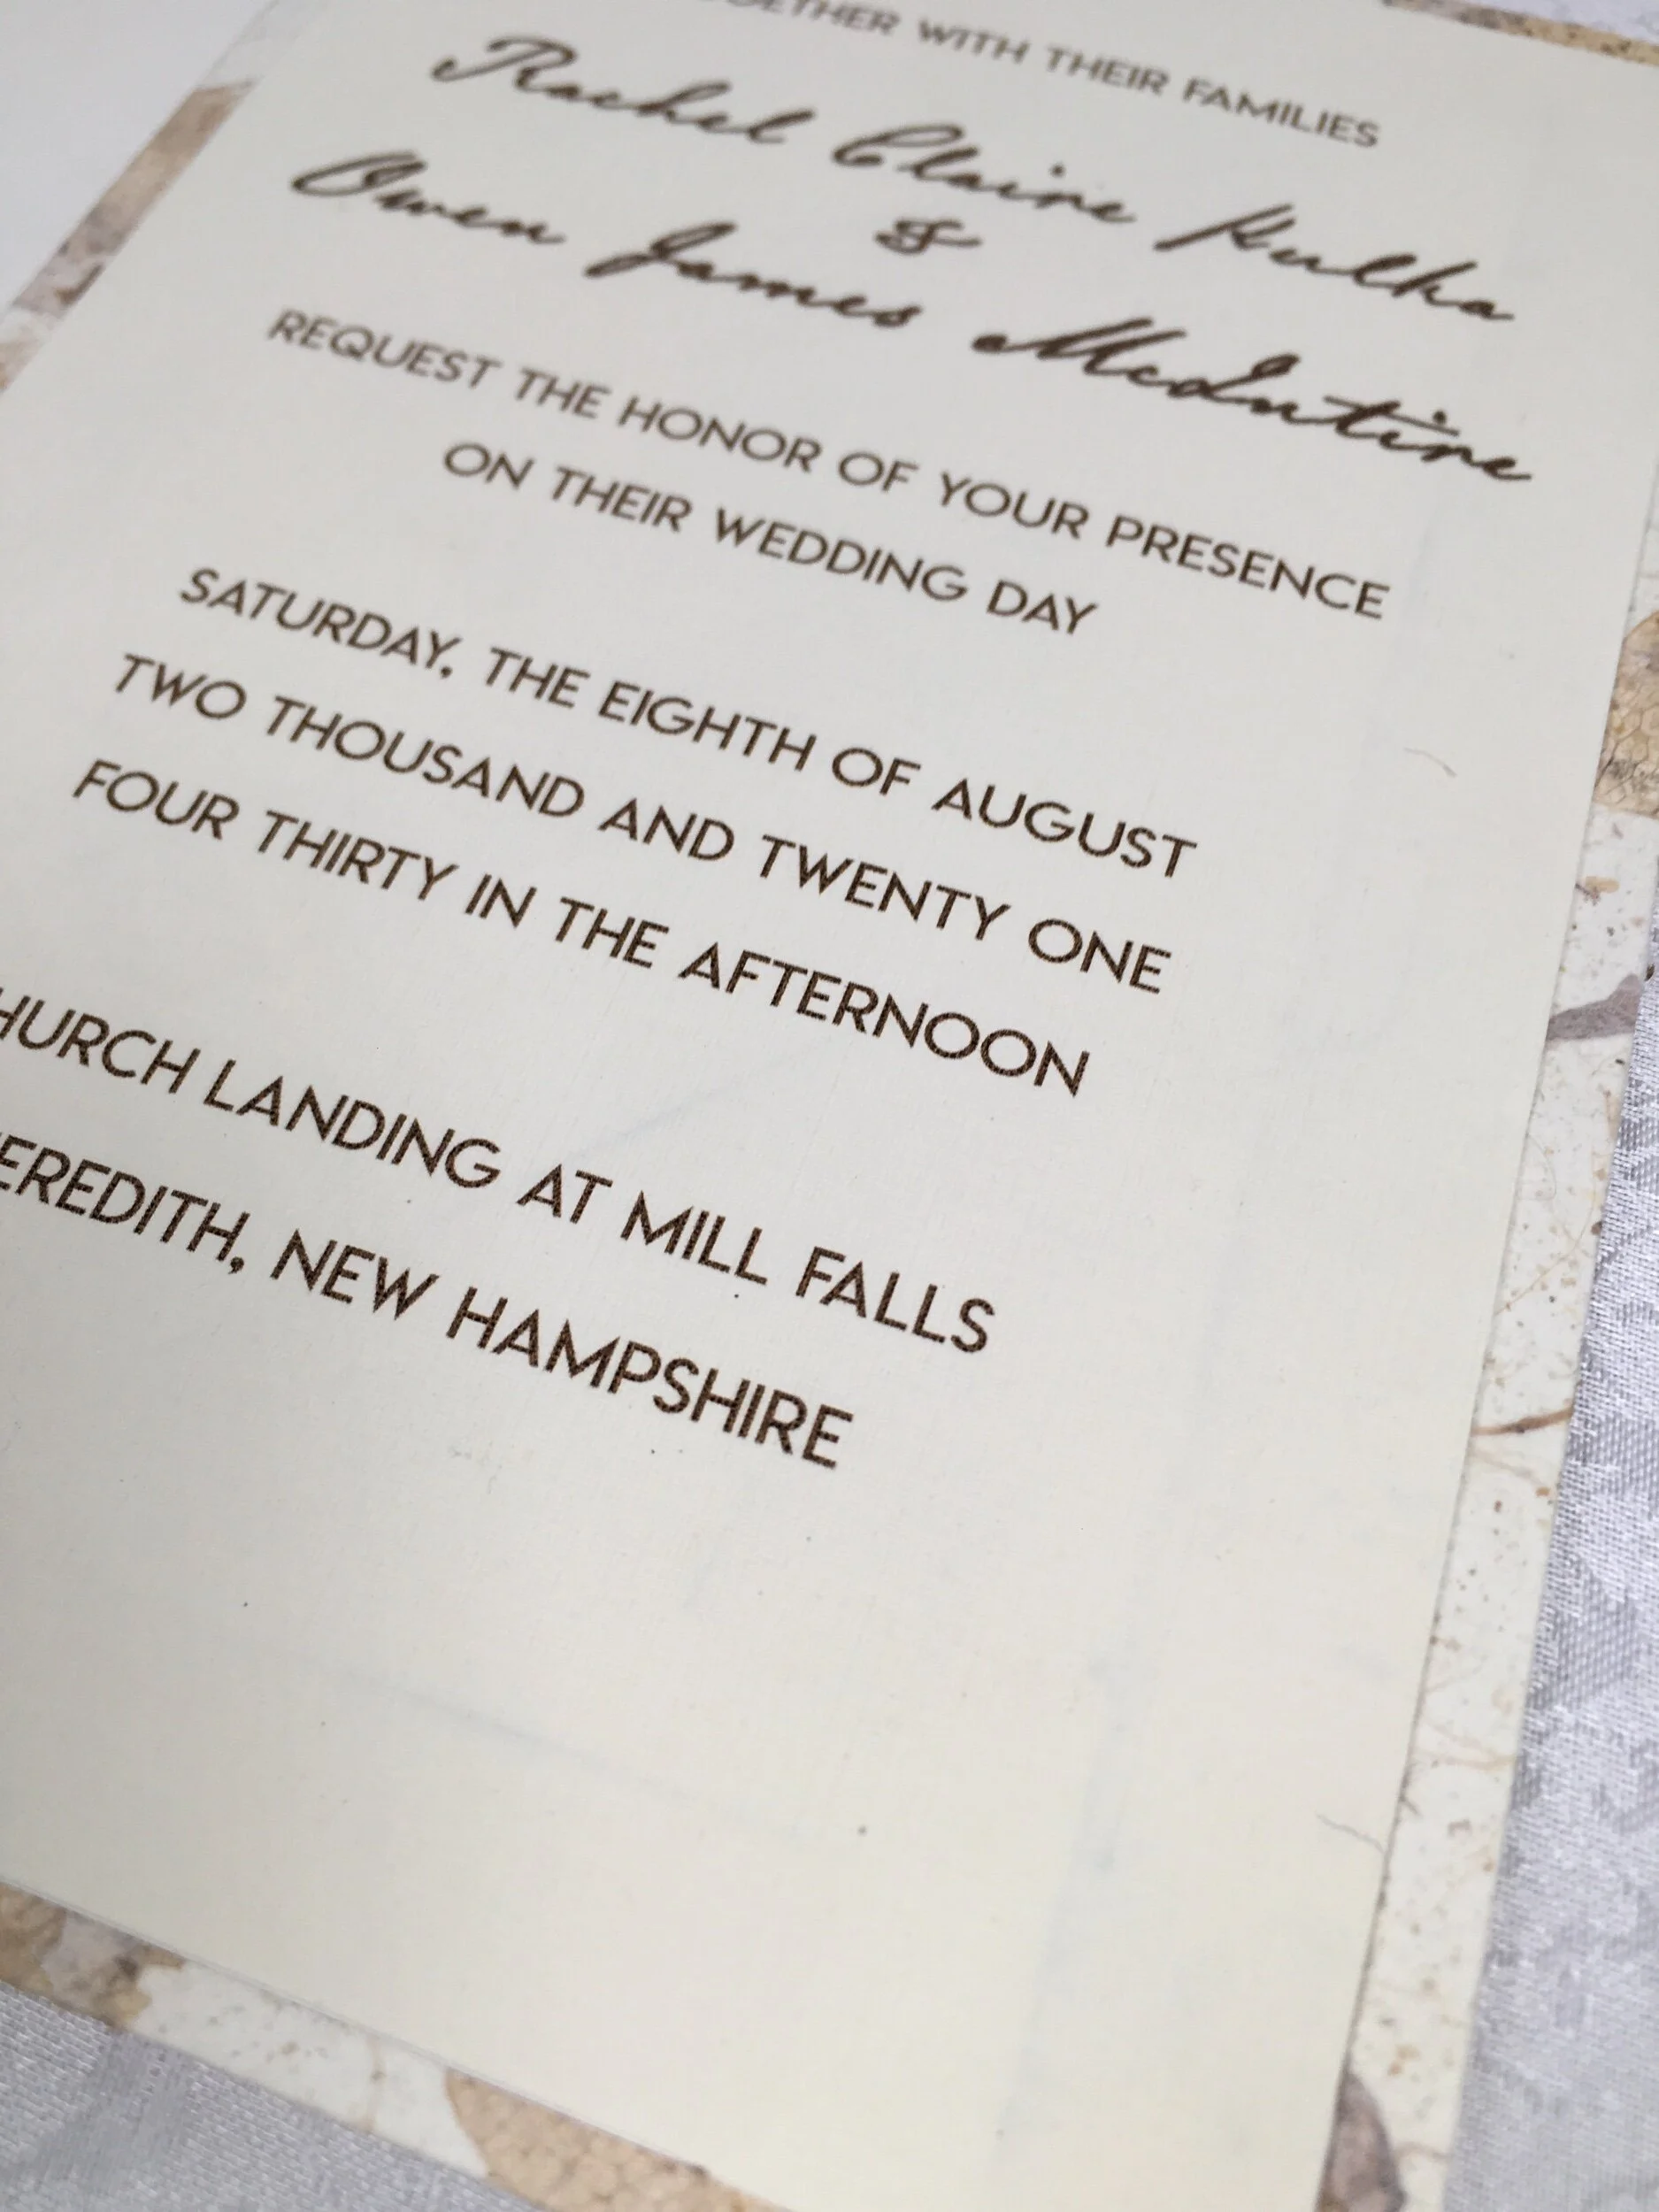 TOGETHER WITH THEIR FAMILIES
Rachel Claire Kulka
&
Owen James McIntire
REQUEST THE HONOR OF YOUR PRESENCE
ON THEIR WEDDING DAY
SATURDAY, THE EIGHTH OF AUGUST
TWO THOUSAND AND TWENTY ONE
FOUR THIRTY IN THE AFTERNOON
HURCH LANDING AT MILL FALLS
EREDITH, NEW HAMPSHIRE